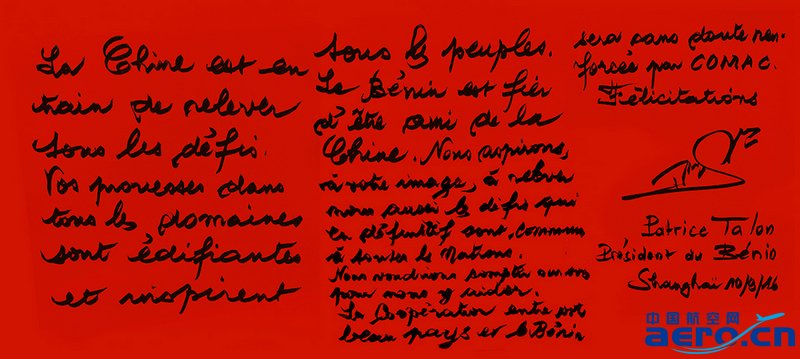 La Chine est en
train de relever
tous les défis.
Vos prouesses dans
tous les domaines
sont édifiantes
et inspirent
tous les peuples.
Le Bénin est fier
d'être ami de la
Chine. Nous aspirons,
à votre image, à relever
nous aussi les défis qui
en définitif sont communs
à toutes les Nations.
Nous voudrions compter sur vous
pour nous y aider.
La Coopération entre votre
beau pays et le Bénin
sera sans doute ren-
forcée par COMAC.
Félicitations
Patrice Talon
Président du Bénin
Shanghaï 10/9/16
中国航空网
aero.cn